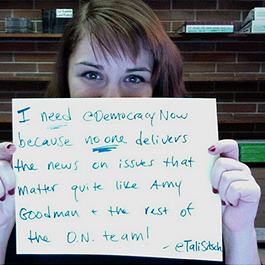 I need @DemocracyNow
because no one delivers
the news on issues that
matter quite like Amy
Goodman + the rest of
the D.N. team!
- @TaliStsch